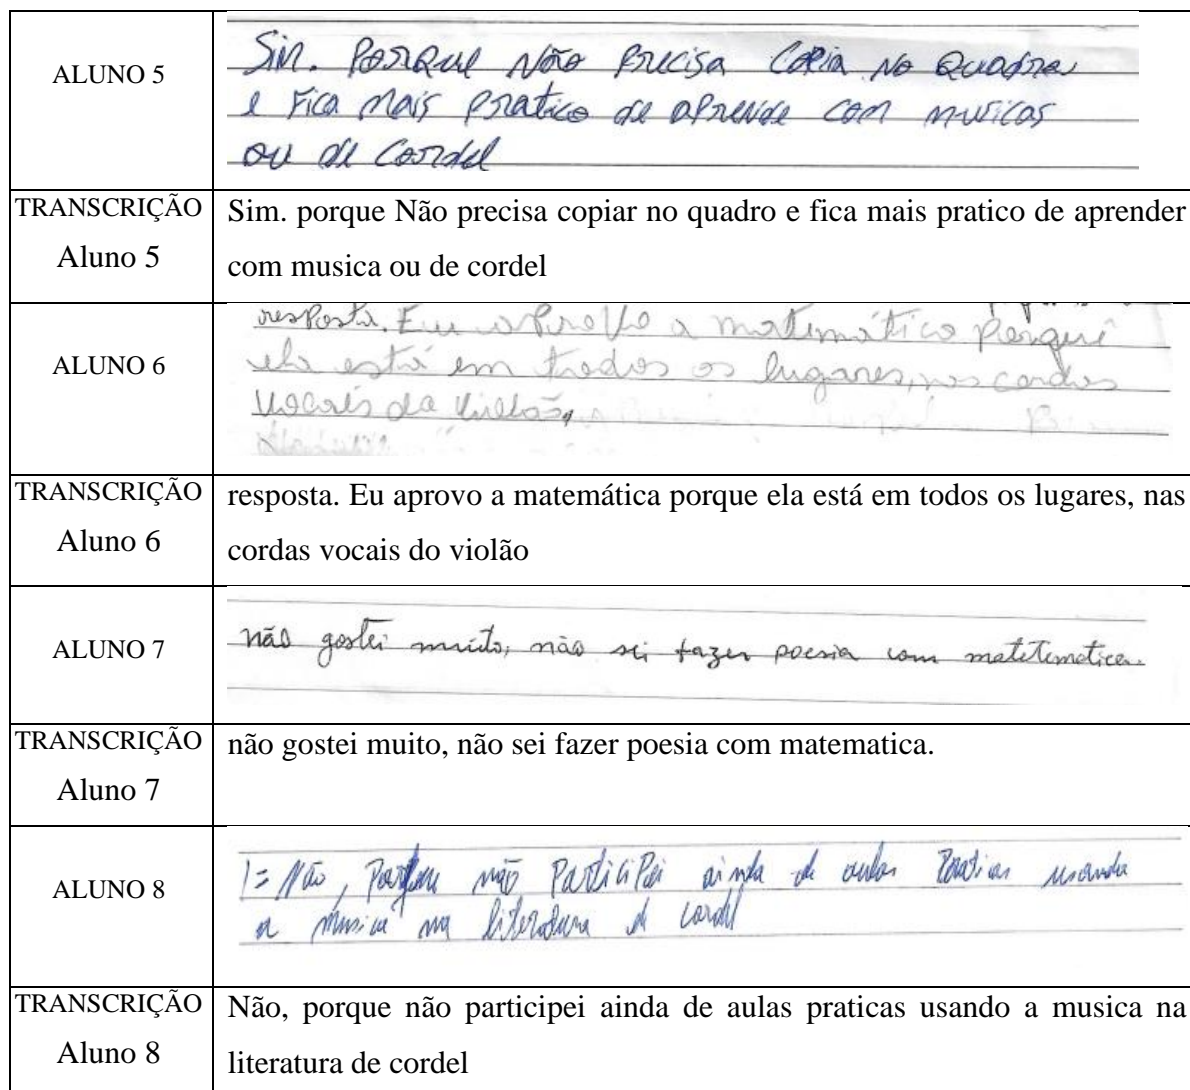 ALUNO 5
Sim. Porque Não Precisa Copia No Quadro
e Fica Mais Pratico de aPrende com musicas
ou de Cordel
TRANSCRIÇÃO
Aluno 5
Sim. porque Não precisa copiar no quadro e fica mais pratico de aprender
com musica ou de cordel
ALUNO 6
resPosta. Eu aProvo a matemática porquê
ela está em todos os lugares, nas cordas
vocais da violão,
TRANSCRIÇÃO
Aluno 6
resposta. Eu aprovo a matemática porque ela está em todos os lugares, nas
cordas vocais do violão
ALUNO 7
não gostei muito, não sei fazer poesia com matetematica.
TRANSCRIÇÃO
Aluno 7
não gostei muito, não sei fazer poesia com matematica.
ALUNO 8
1= Não, Porque não ParticiPei ainda de aulas Praticas usando
a musica na literatura d cordel
TRANSCRIÇÃO
Aluno 8
Não, porque não participei ainda de aulas praticas usando a musica na
literatura de cordel